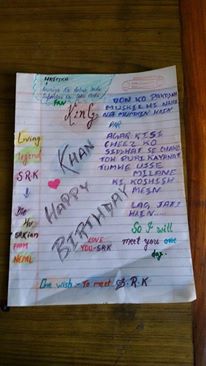 FAN
KING
KHAN
HAPPY
BIRTHDAY
DON KO PAKADNA
MUSHKIL HI NAHI
NA MUMKIN HAIN
PAR
AGAR KISI
CHEEZ KO
SIDHAT SE CHAHO
TOH PURI KAYNAT
TUMHE USSE
MILANE
KI KOSHISH
MEIN
LAG JATI
HIEN.....
So I will
meet you one
day.
Living
legend
S.R.K
FROM
NEPAL
LOVE
YOU-SRK
One wish - To meet S.R.K